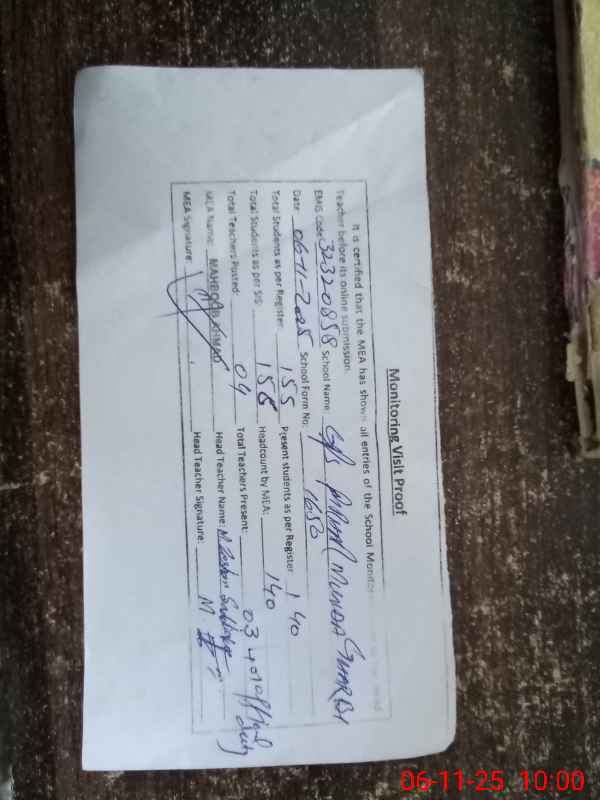 Monitoring Visit Proof
It is certified that the MEA has shown all entries of the School Monitor
Teacher before its online submission.
EMIS Code: 32320858 School Name: G/S MUNDA SHARQI
Date: 06-11-2025 School Form No: 1650
Total Students as per Register: 155 Present students as per Register 140
Total Students as per SID: 155 Headcount by MEA: 140
Total Teachers Posted: 04 Total Teachers Present: 03 + 01 official duty
MEA Name: MAHBOOB AHMAD Head Teacher Name: M.
MEA Signature: Head Teacher Signature: M.
06-11-25 10:00